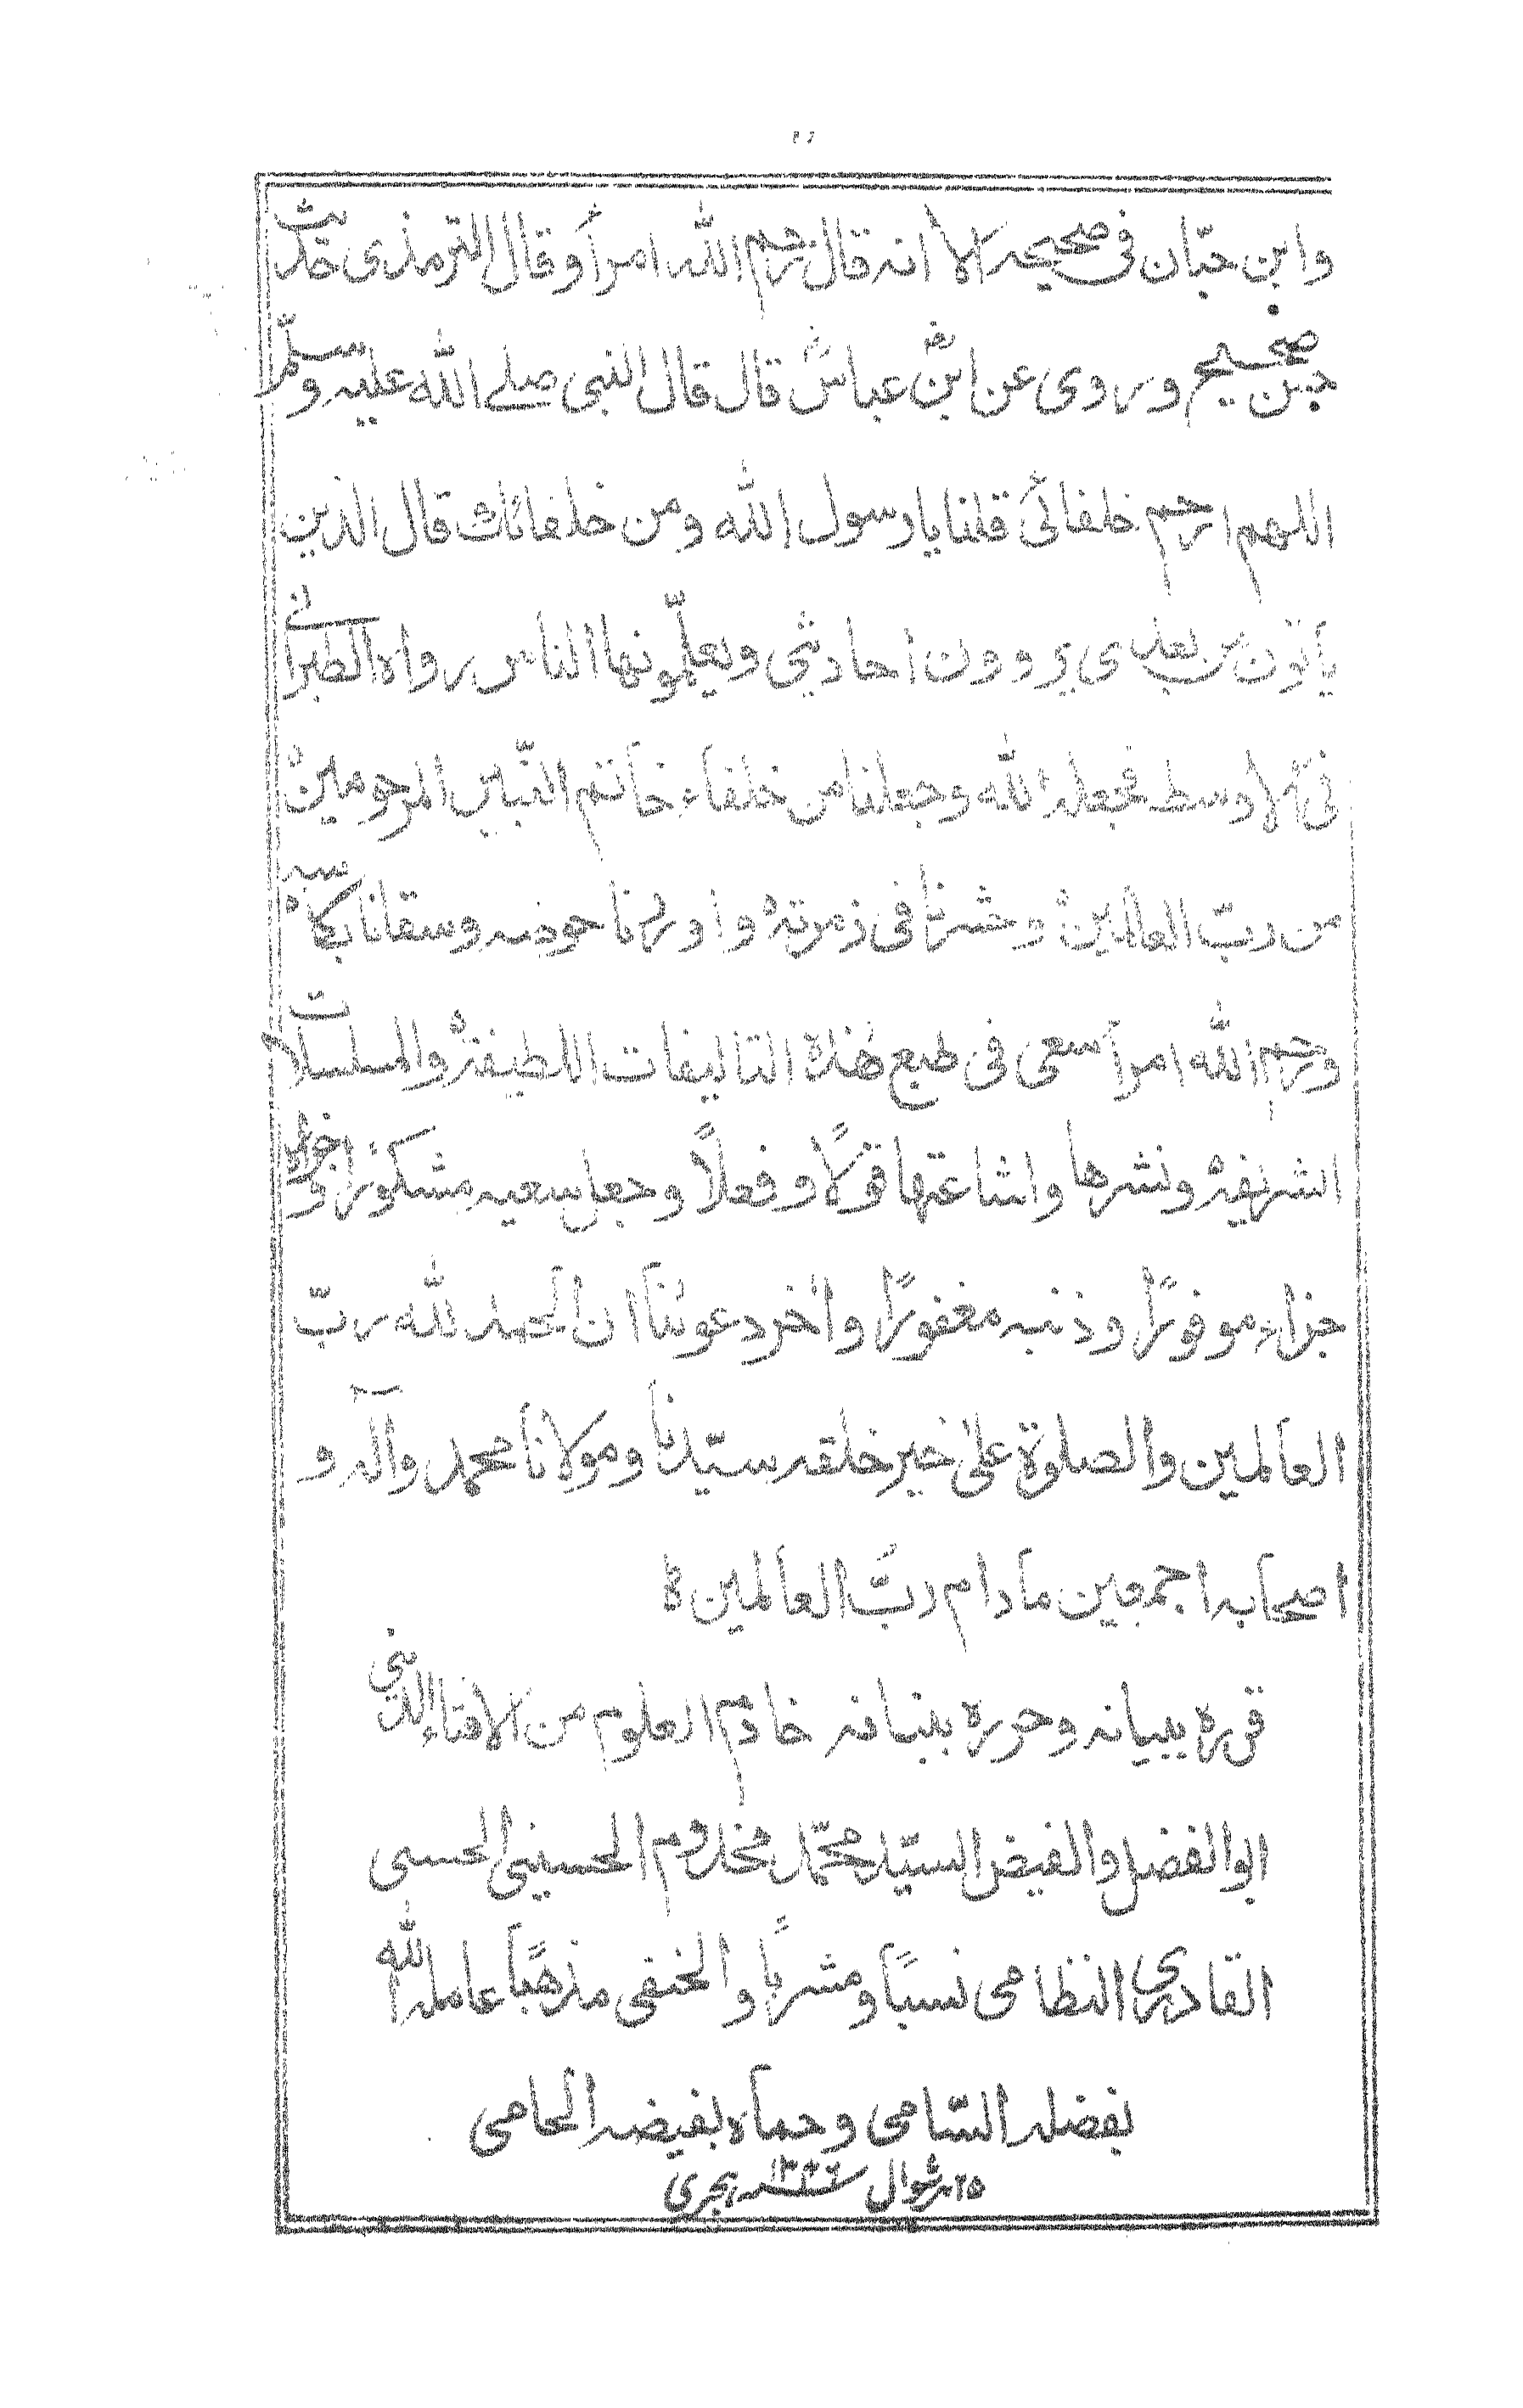 وابن حبّان فی صحیحہ الا انہ قال رحم اللّٰہ امرأ وقال الترمذی حدیث
حسن صحیح وروی عن ابن عباس قال قال النبی صلے اللّٰہ علیہ وسلّم
اللہم ارحم خلفائی قلنا یا رسول اللّٰہ ومن خلفائک قال الذین
یأتون من بعدی یروون احادیثی ویعلّمونہا الناس رواہ الطبرانے
فی الاوسط فجعلہ اللّٰہ وجعلنا من خلفاء خاتم النّبیین المرحومین
من ربّ العالمین وحشرنا فی زمرتہ واوردنا حوضہ وسقانا بکاسہ
ورحم اللّٰہ امرأ سعی فی طبع ھٰذہ التالیفات اللطیفۃ والمسلسلات
الشریفۃ ونشرہا واشاعتہا قولًا وفعلًا وجعل سعیہ مشکورًا واجزاہ
جزاء موفورًا وذنبہ مغفورًا واٰخر دعوٰنا ان الحمد للّٰہ ربّ
العالمین والصلوۃ علیٰ خیر خلقہ سیّدنا ومولانا محمد وآلہ و
اصحابہ اجمعین مادام ربّ العالمین ۃ
قررہ ببیانہ وحررہ ببنانہ خادم العلوم من الافتاء الدینی
ابوالفضل والفیض السیّد محمّد مخدوم الحسینی الحسنی
القادری النظامی نسبًا ومشربًا والحنفی مذھبًا عاملہ اللّٰہ
بفضلہ السّامی وحماہ بفیضہ الحامی
۲۵ شوال ہجری